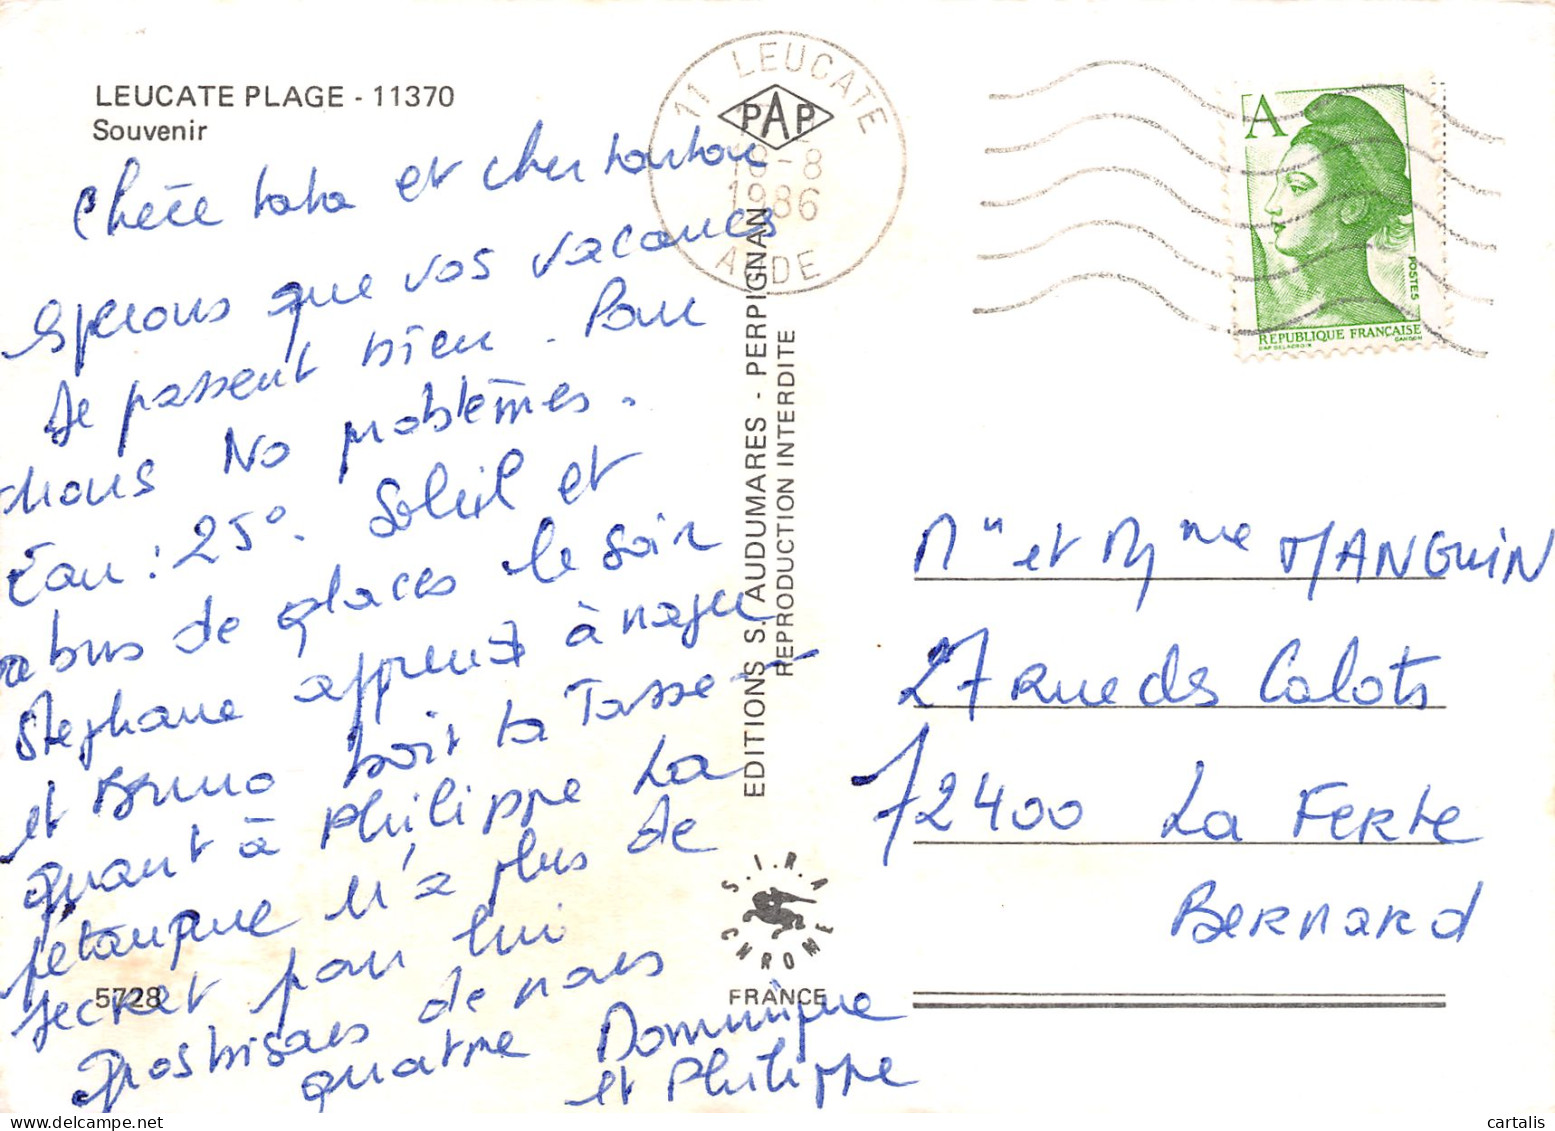 LEUCATE PLAGE - 11370
Souvenir
Chère tata et cher tonton
Sperons que vos vacances
se passent bien. Pour
nous No problèmes.
Eau : 25°. Soleil et
abus de glaces le soir
Stephane apprend à nager
et Bruno boit la Tasse
quant à Philippe la
pétanque n'a plus de
secret pour lui
Gros bisous de nous
quatre Dominique
et Philippe
5728
11 LEUCATE
PAP
18-8
1986
AUDE
EDITIONS S. AUDUMARES - PERPIGNAN
REPRODUCTION INTERDITE
S.I.R.A
CHROME
FRANCE
A
POSTES
REPUBLIQUE FRANÇAISE
DAP DELACROIX GANDON
Mr et Mme MANGUIN
27 Rue des Calots
72400 La FERTE
BERNARD
cartalis